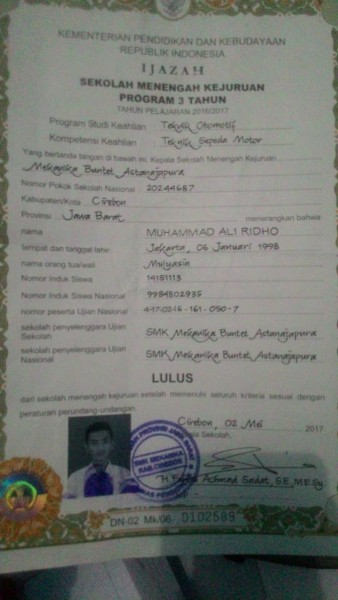 KEMENTERIAN PENDIDIKAN DAN KEBUDAYAAN
REPUBLIK INDONESIA
IJAZAH
SEKOLAH MENENGAH KEJURUAN
PROGRAM 3 TAHUN
TAHUN PELAJARAN 2016/2017
Program Studi Keahlian : Teknik Otomotif
Kompetensi Keahlian : Teknik Sepeda Motor
Yang bertanda tangan di bawah ini, Kepala Sekolah Menengah Kejuruan
Mekanika Buntet Astanajapura
Nomor Pokok Sekolah Nasional : 20244687
Kabupaten/Kota : Cirebon
Provinsi : Jawa Barat menerangkan bahwa
nama : MUHAMMAD ALI RIDHO
tempat dan tanggal lahir : Jakarta, 06 Januari 1998
nama orang tua/wali : Mulyasin
Nomor Induk Siswa : 14151113
Nomor Induk Siswa Nasional : 9984802935
nomor peserta Ujian Nasional : 4-17-02-16-161-050-7
sekolah penyelenggara Ujian Sekolah : SMK Mekanika Buntet Astanajapura
sekolah penyelenggara Ujian Nasional : SMK Mekanika Buntet Astanajapura
LULUS
dari sekolah menengah kejuruan setelah memenuhi seluruh kriteria sesuai dengan
peraturan perundang-undangan.
Cirebon, 02 Mei 2017
Sekolah,
SMK MEKANIKA
KAB. CIREBON
Achmad Sadat, SE, ME.Sy
DN-02 Mk/06 0102589